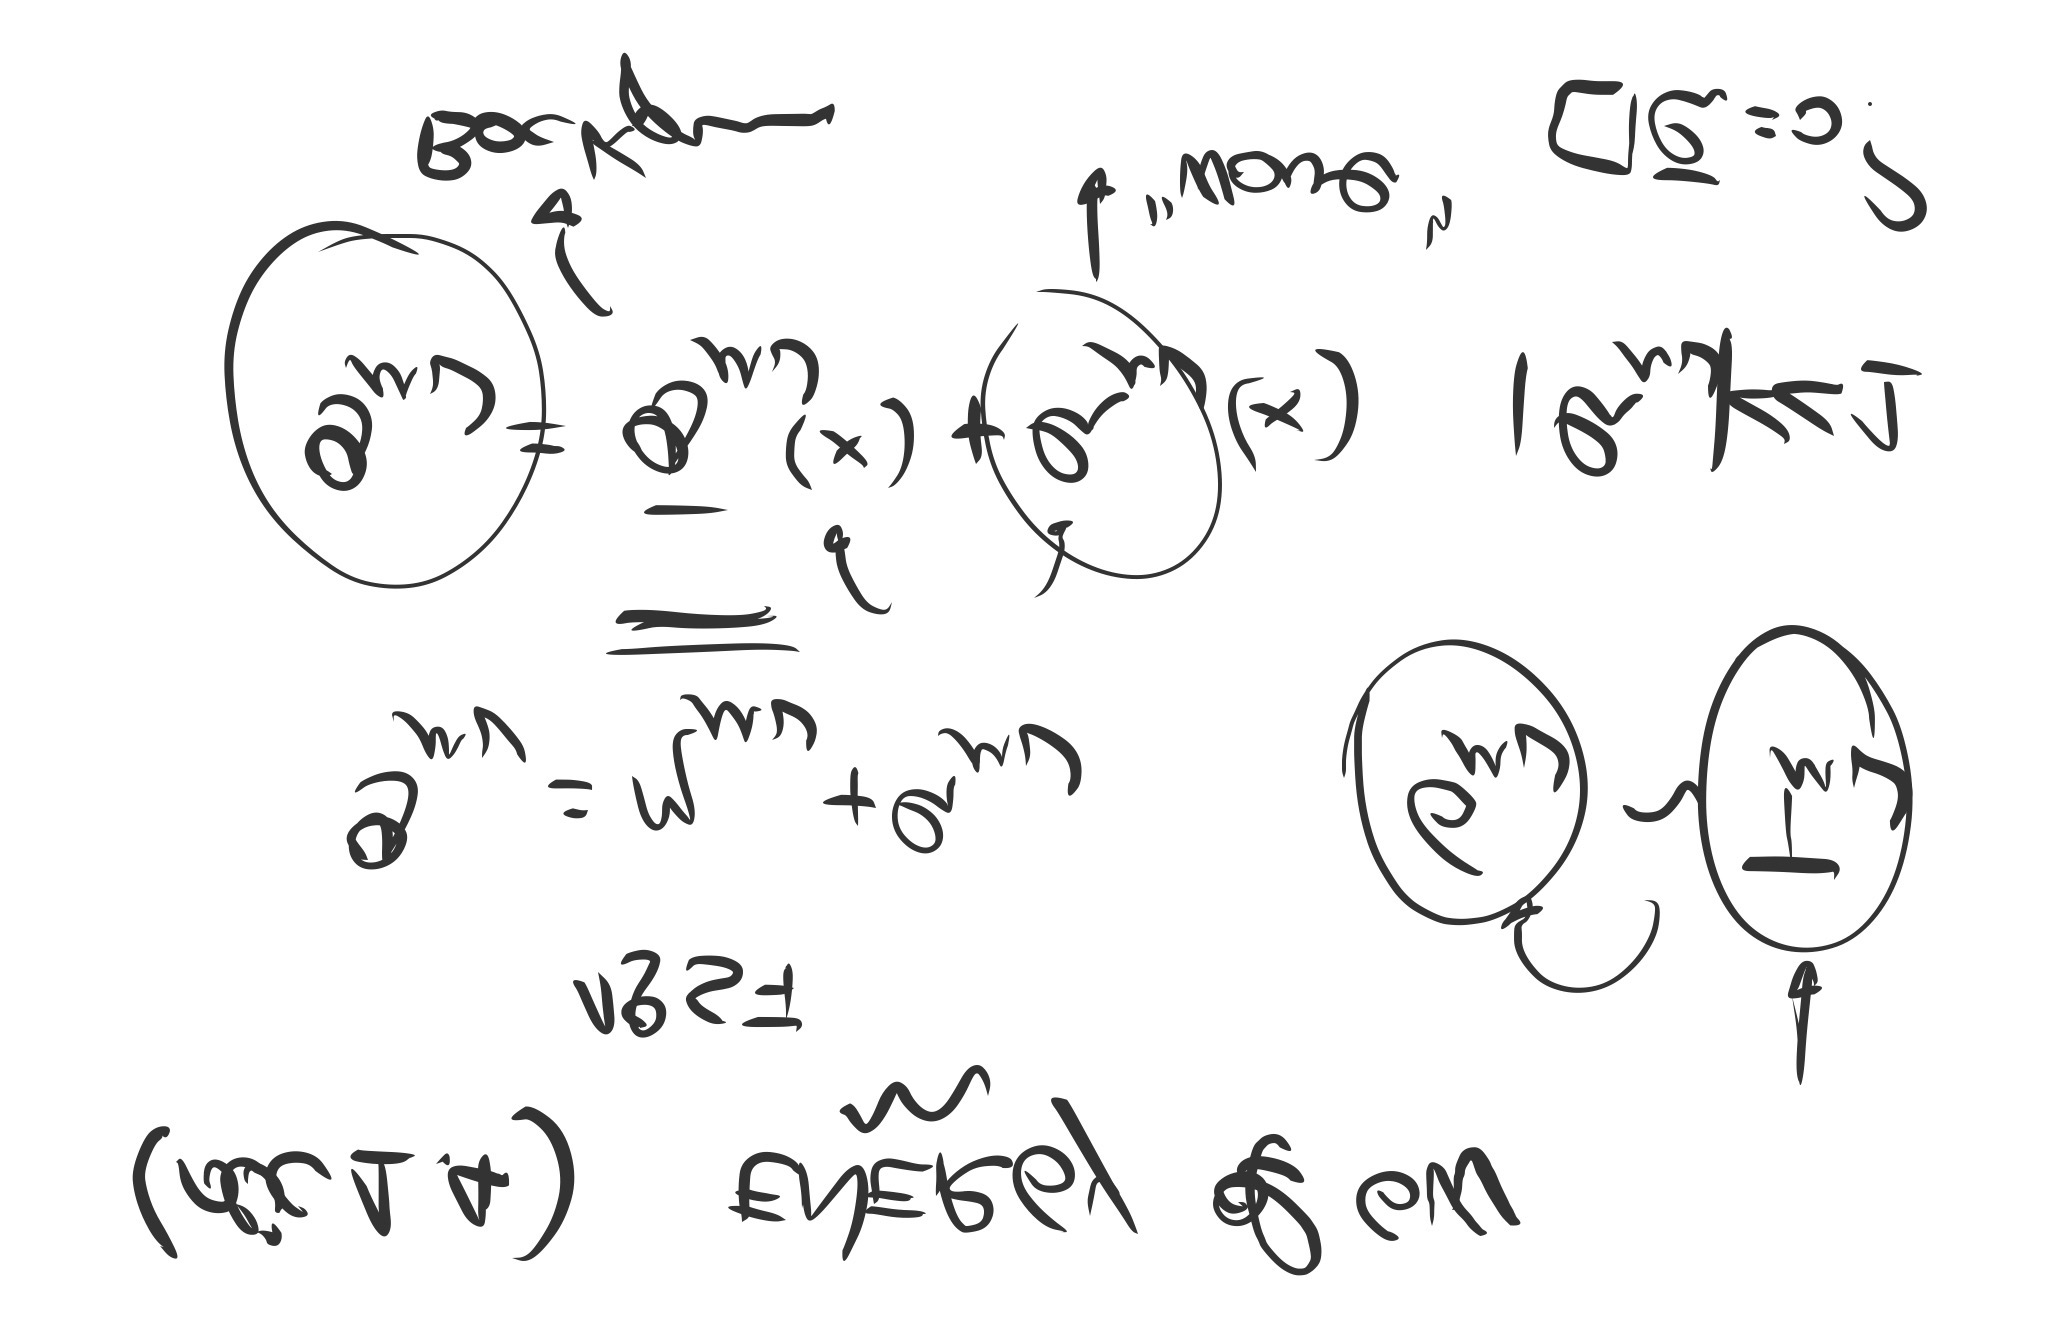 (sec 1.4) ENERGY of GW
1957
g_μν = η_μν + h_μν
G_μν ~ T_μν
g_μν = ḡ_μν(x) + h_μν(x) |h_μν| << 1
"wave"
□h̄ = 0?